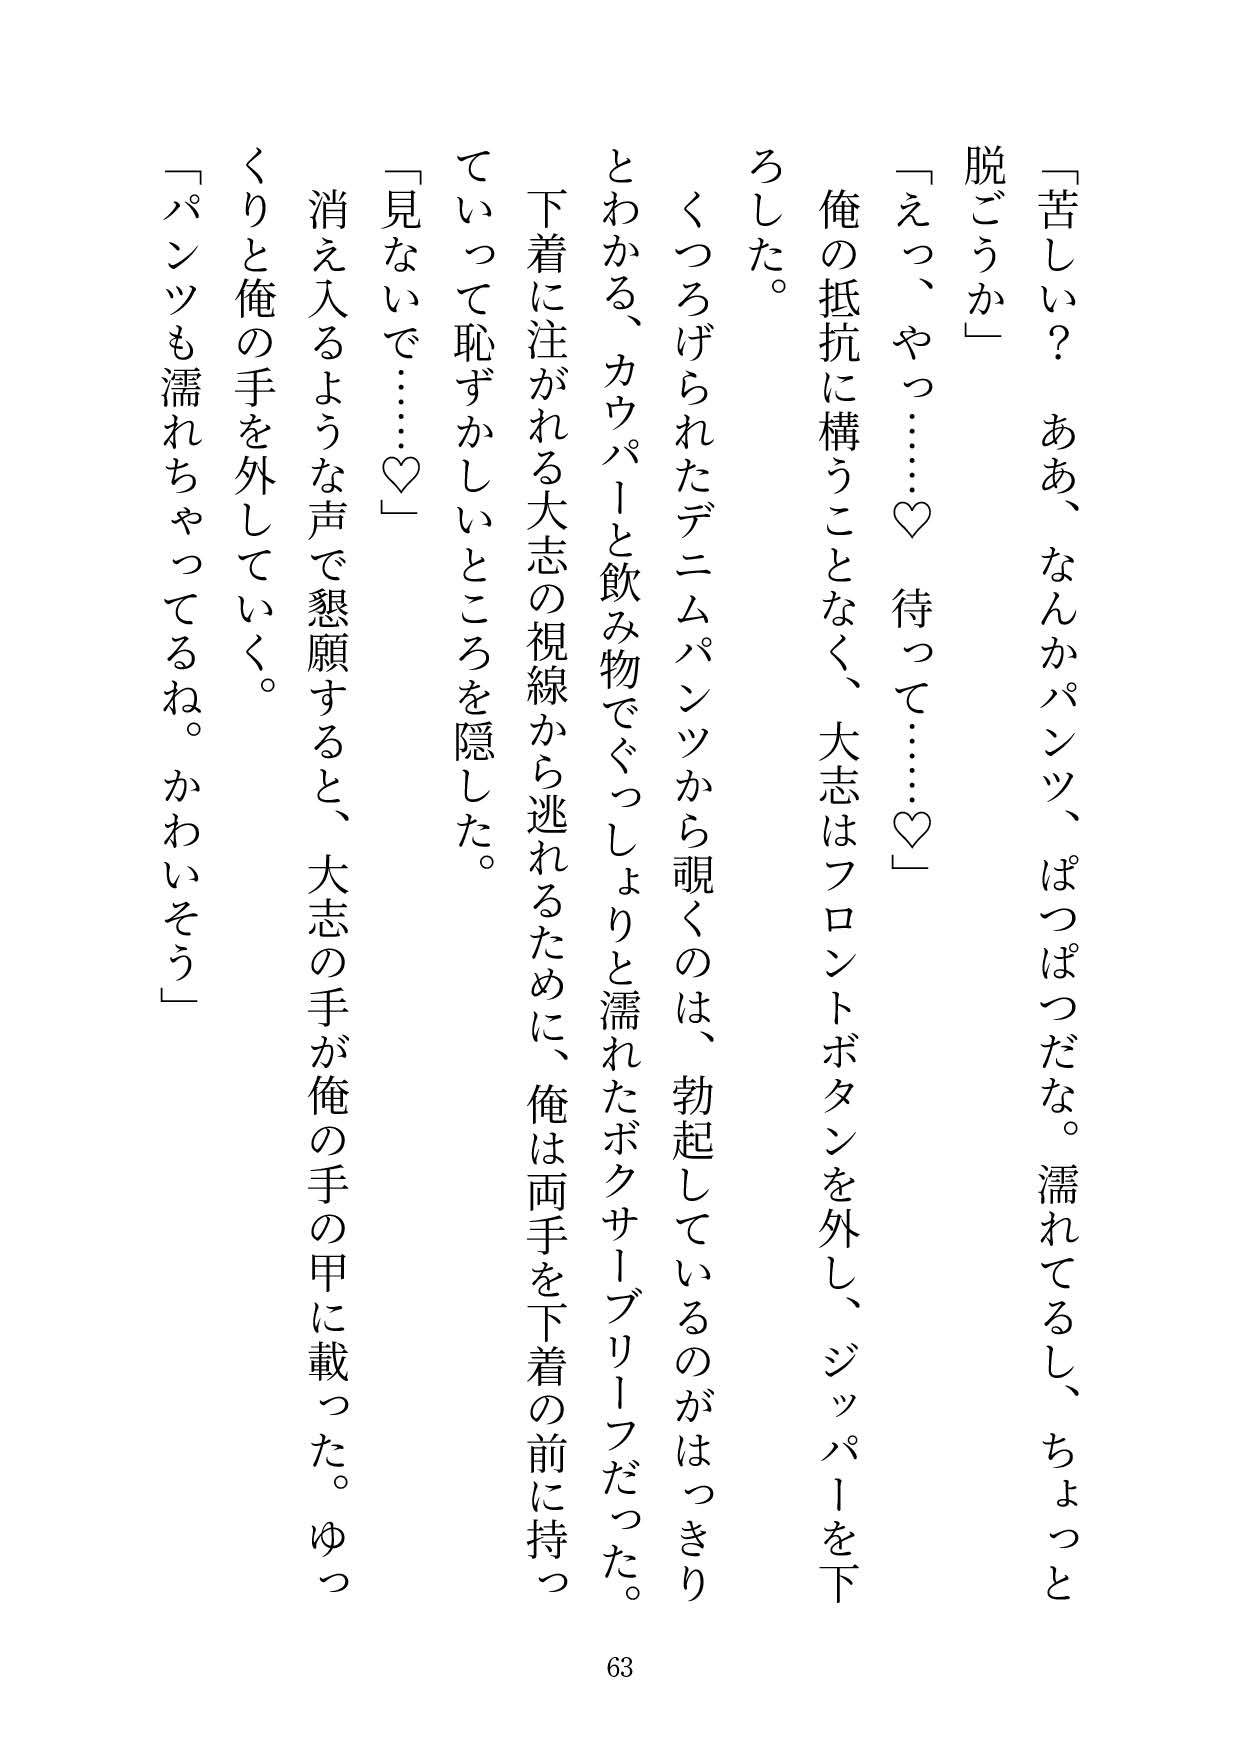 「苦しい？　ああ、なんかパンツ、ぱつぱつだな。濡れてるし、ちょっと
脱ごうか」
「えっ、やっ……♡　待って……♡」
　俺の抵抗に構うことなく、大志はフロントボタンを外し、ジッパーを下
ろした。
　くつろげられたデニムパンツから覗くのは、勃起しているのがはっきり
とわかる、カウパーと飲み物でぐっしょりと濡れたボクサーブリーフだった。
　下着に注がれる大志の視線から逃れるために、俺は両手を下着の前に持っ
ていって恥ずかしいところを隠した。
「見ないで……♡」
　消え入るような声で懇願すると、大志の手が俺の手の甲に載った。ゆっ
くりと俺の手を外していく。
「パンツも濡れちゃってるね。かわいそう」
63